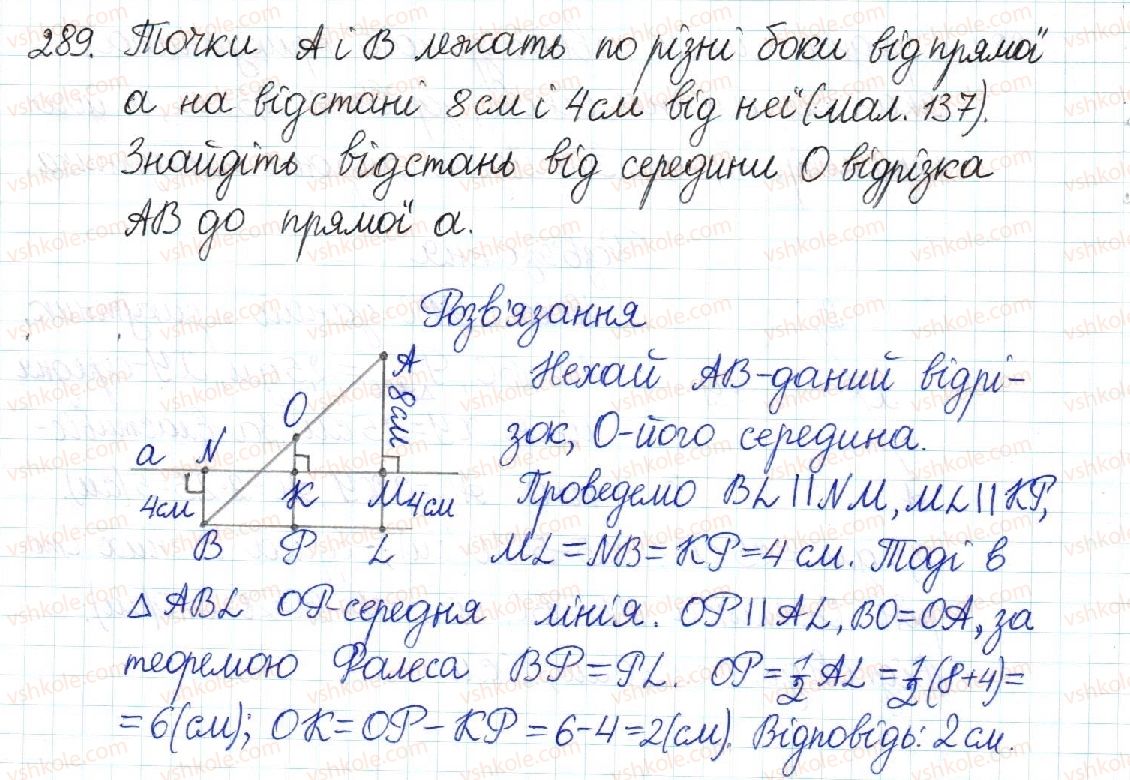 289. Точки А і В лежать по різні боки від прямої
а на відстані 8 см і 4 см від неї (мал. 137).
Знайдіть відстань від середини О відрізка
АВ до прямої а.
Розв'язання
A
8 см
O
a N
K M 4 см
4 см
B P L
Нехай АВ-даний відрі-
зок, О-його середина.
Проведемо BL || NM, ML || KP,
ML = NB = KP = 4 см. Тоді в
△ ABL OP-середня лінія. OP || AL, BO = OA, за
теоремою Фалеса BP = PL. OP = 1/2 AL = 1/2 (8+4) =
= 6 (см); OK = OP - KP = 6 - 4 = 2 (см). Відповідь: 2 см.